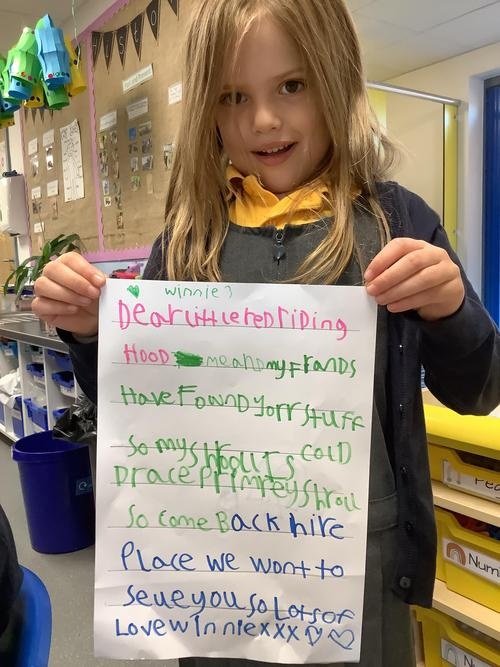 winnie
Dear Little red riding
HOOD me and my Frands
Have Fownd yorr stuff
So my shooll Is cold
Drace primrey Shroll
So come Back hire
Place we wont to
seue you so Lots of
Love winniexxx ♡ ♡
Num
Num